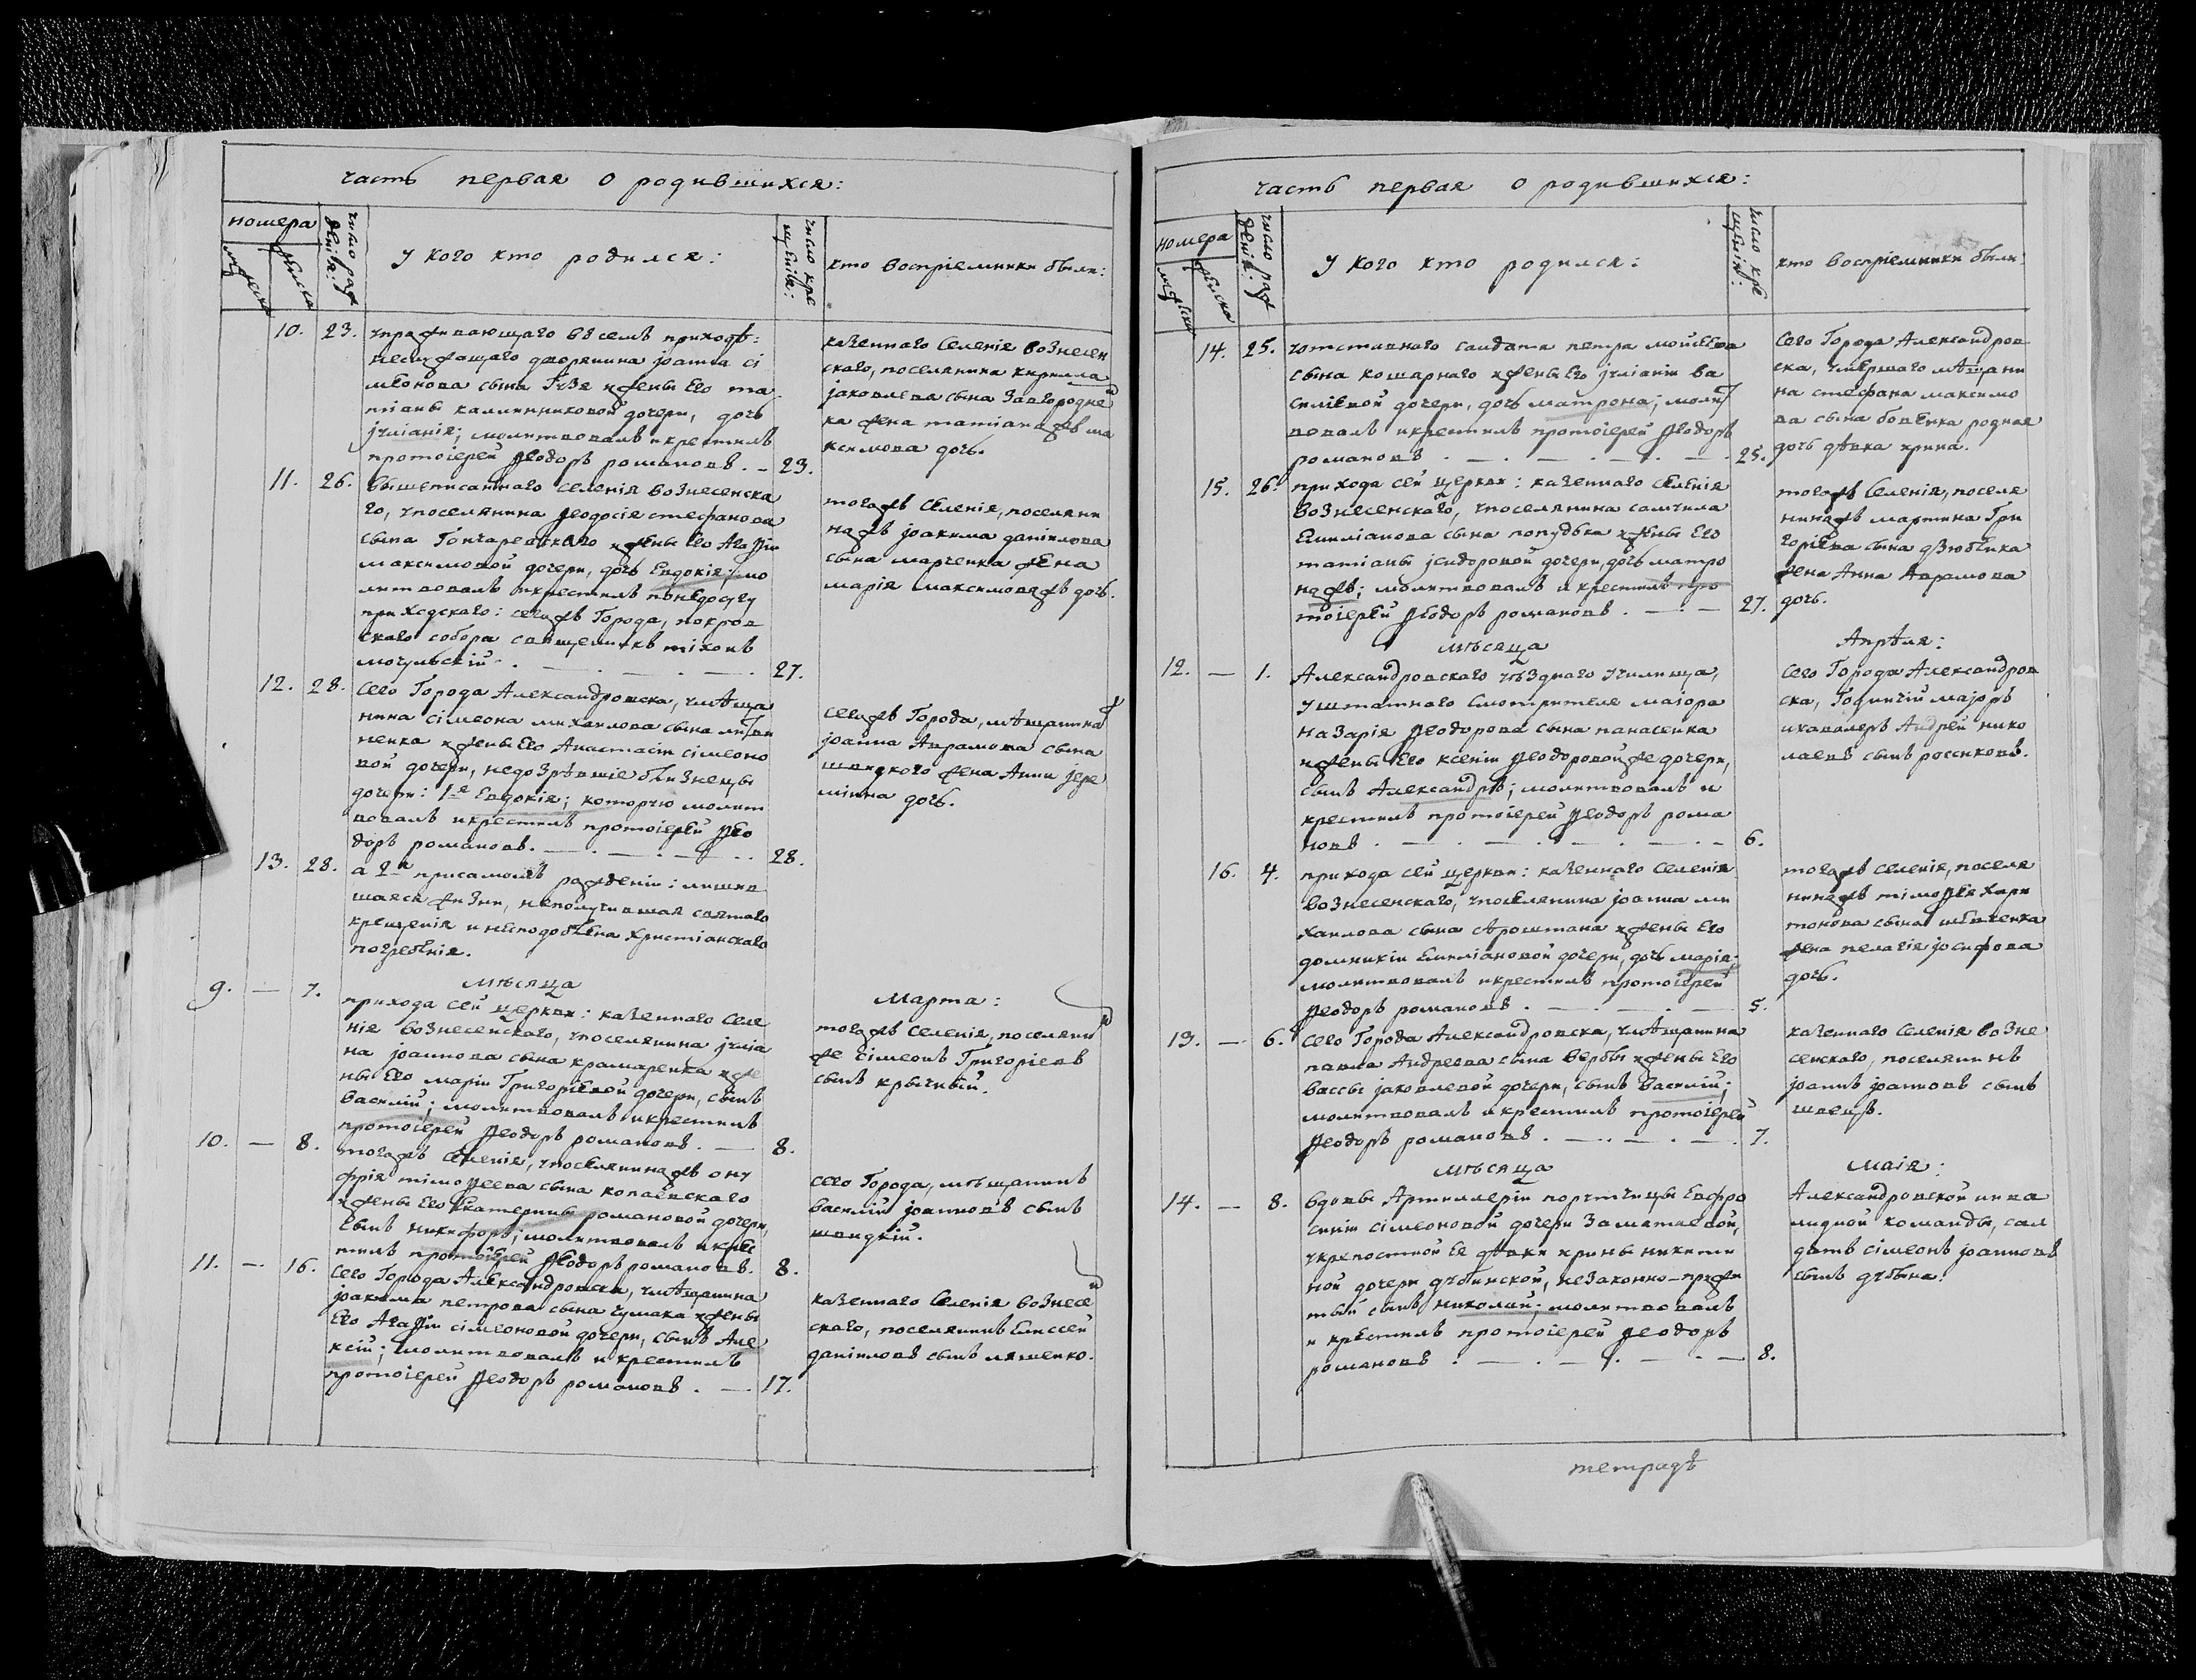 часть первая о родившихся:
номера
мужеска
женска
число рож
денія:
у кого кто родился:
число кре
щенія:
кто воспріемники были:
10. 23. упражнвающаго въ семъ приходѣ:
неслужащаго дворянина іоанна сі
меонова сына Гузя и жены его та
тіаны калинниковой дочери, дочь
іуліанія; молитвовалъ и крестилъ
протоіерей Ѳеодоръ романовъ. — 23.
казеннаго селенія вознесен
скаго, поселянина кирилла
іаковлева сына Завгородне
ка жена татіана ма
ксимова дочь.
11. 26. вышеписаннаго селенія вознесенска
го, у поселянина Ѳеодосія стефанова
сына Гончаревскаго и жены его Агафіи
максимовой дочери, дочь Евдокія; мо
литвовалъ и крестилъ по недосугу
приходскаго: сего жъ Города, покров
скаго собора священникъ тіхонъ
мочульскій. — 27.
того жъ селенія, поселяни
на жъ іоакима даніилова
сына марченка жена
марія максимова жъ дочь.
12. 28. сего Города Александровска, у мѣща
нина сімеона михаилова сына литви
ненка и жены его Анастасіи сімеоно
вой дочери, недозрѣвшіе близнецы
дочери: 1я Евдокія; которую молит
вовалъ и крестилъ протоіерей Ѳео
доръ романовъ. — 28.
сего жъ Города, мѣщанина
іоанна Аврамова сына
швидкого жена Анна іере
міина дочь.
13. 28. а 2я при самомъ рожденіи: лишив
шаяся жизни, неполучившая святаго
крещенія и несподоблена христіанскаго
погребенія.
мѣсяца
Марта:
9. — 7. прихода сей церкви: казеннаго селе
нія вознесенскаго, у поселянина іуліа
на іоаннова сына крамаренка и же
ны его маріи Григоріевой дочери, сынъ
василій; молитвовалъ и крестилъ
протоіерей Ѳеодоръ романовъ. — 8.
того жъ селенія, поселянин
же сімеонъ Григоріевъ
сынъ крычный.
10. — 8. того жъ селенія, у поселянина жъ ону
фрія тімоѳеева сына копаевскаго
и жены его Екатерины романовой дочери,
сынъ никифоръ; молитвовалъ и крес
тилъ протоіерей Ѳеодоръ романовъ. 8.
сего Города, мѣщанинъ
василій іоанновъ сынъ
швидкій.
11. — 16. сего Города Александровска, у мѣщанина
іоакима петрова сына чумака и жены
его Агафіи сімеоновой дочери, сынъ Але
ксій; молитвовалъ и крестилъ
протоіерей Ѳеодоръ романовъ. — 17.
казеннаго селенія вознесен
скаго, поселянинъ Елиссей
даніиловъ сынъ ляшенко.
часть первая о родившихся:
номера
мужеска
женска
число рож
денія:
у кого кто родился:
число кре
щенія:
кто воспріемники были
14. 25. у отставнаго салдата петра моисеева
сына кошарнаго и жены его іуліаніи ва
силіевой дочери, дочь матрона; молит
вовалъ и крестилъ протоіерей Ѳеодоръ
романовъ. — 25.
сего Города Александров
ска, умершаго мѣщани
на стефана максимо
ва сына бовенка родная
дочь дѣвка ирина.
15. 26. прихода сей церкви: казеннаго селенія
вознесенскаго, у поселянина самуила
Емиліанова сына попудька и жены его
татіаны ісидоровой дочери, дочь матро
на жъ; молитвовалъ и крестилъ про
тоіерей Ѳеодоръ романовъ. — 27.
того жъ селенія, поселя
нина жъ мартина Гри
горіева сына дзюбенка
жена Анна Аврамова
дочь.
мѣсяца
Апрѣля:
12. — 1. Александровскаго уѣзднаго училища,
у штатнаго смотрителя маіора
назарія Ѳеодорова сына панасенка
и жены его ксеніи Ѳеодоровой же дочери,
сынъ Александръ; молитвовалъ и
крестилъ протоіерей Ѳеодоръ рома
новъ. — 6.
сего Города Александров
ска, Годничій маіоръ
и кавалеръ Андрей нико
лаевъ сынъ россиковъ.
16. 4. прихода сей церкви: казеннаго селенія
вознесенскаго, у поселянина іоанна ми
хаилова сына Ярошпана и жены его
домникіи Емиліановой дочери, дочь марія;
молитвовалъ и крестилъ протоіерей
Ѳеодоръ романовъ. — 5.
того жъ селенія, поселя
нина жъ тімоѳея хари
тонова сына шевченка
жена пелагія іосифова
дочь.
13. — 6. сего Города Александровска, у мѣщанина
павла Андреева сына вербы и жены его
вассы іаковлевой дочери, сынъ василій;
молитвовалъ и крестилъ протоіерей
Ѳеодоръ романовъ. — 7.
казеннаго селенія возне
сенскаго, поселянинъ
іоаннъ іоанновъ сынъ
швецъ.
мѣсяца
маія:
14. — 8. вдовы Артиллеріи поручицы Евфро
синіи сімеоновой дочери Заматаевой,
у крепостной ея дѣвки ирины никити
ной дочери дубинской, незаконно-прижи
тый сынъ николай; молитвовалъ
и крестилъ протоіерей Ѳеодоръ
романовъ. — 8.
Александровской инва
лидной команды, сал
датъ сімеонъ іоанновъ
сынъ дубына.
тетрадъ